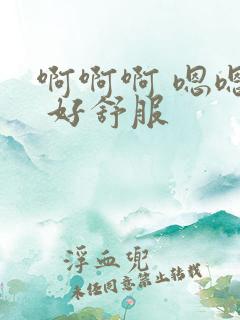 啊啊啊 嗯嗯
好舒服
浮血兜
未经同意禁止转载